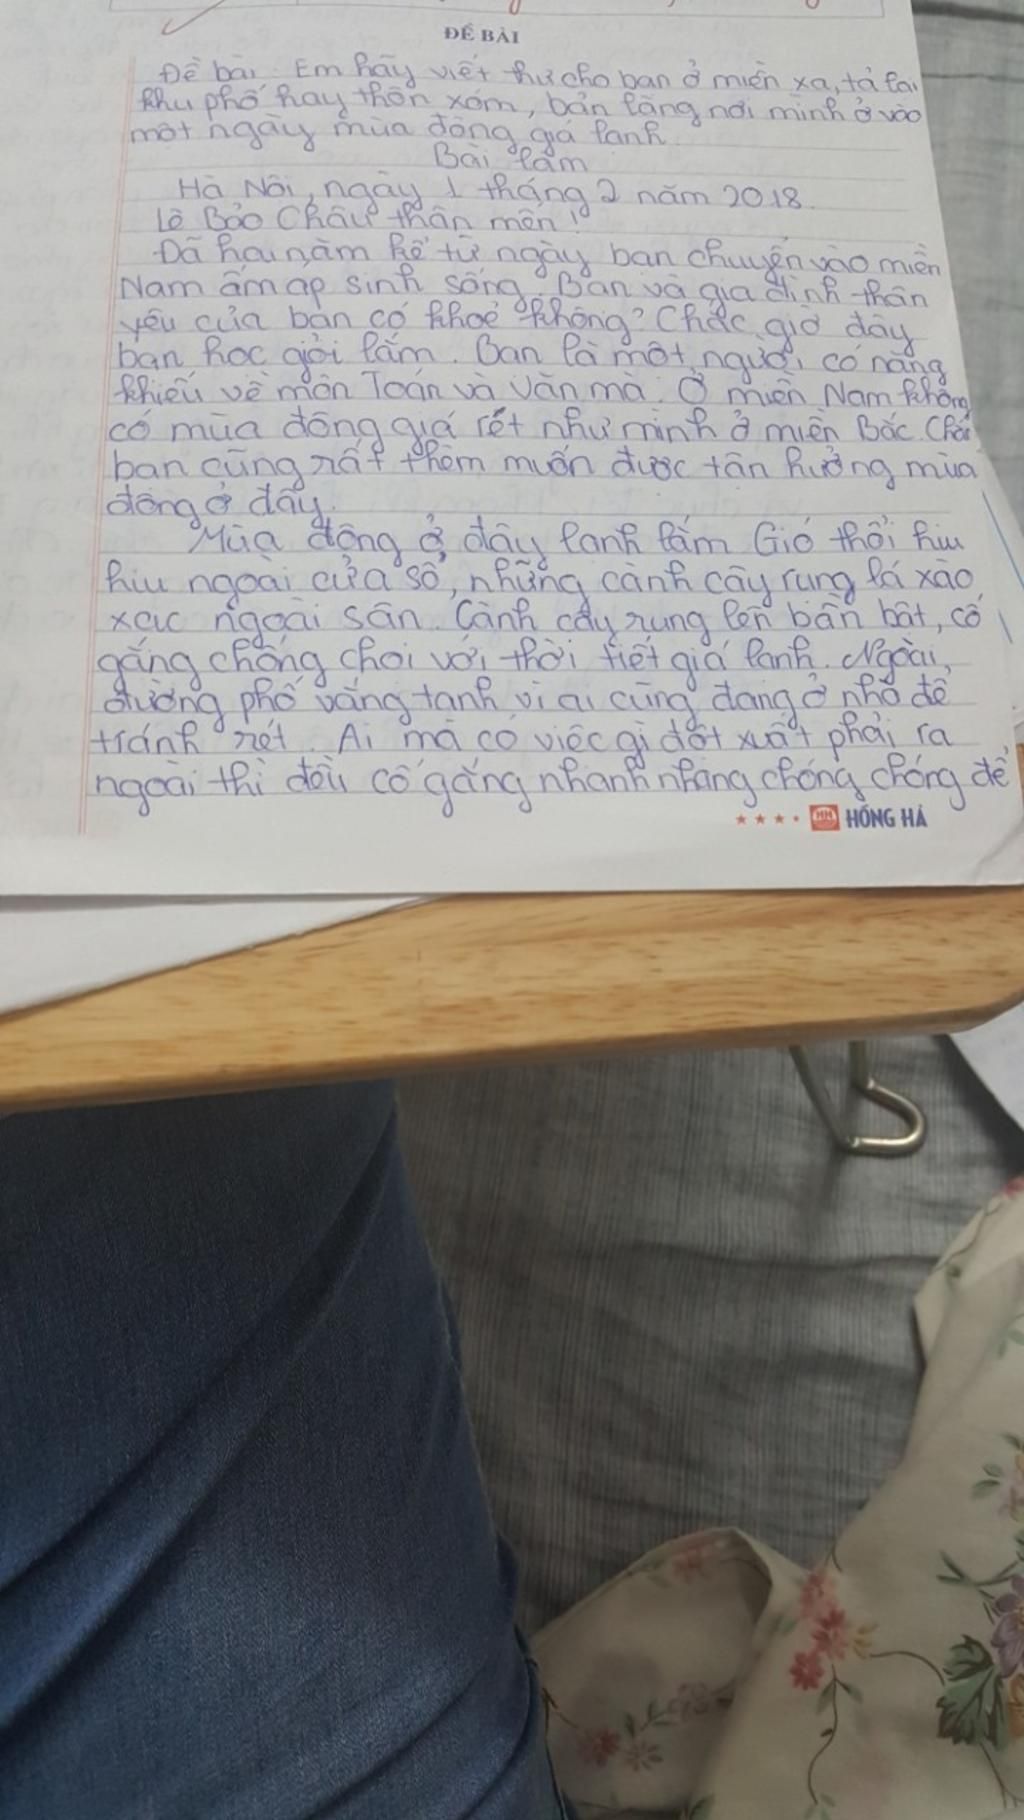 ĐỀ BÀI
Đề bài: Em hãy viết thư cho bạn ở miền xa, tả lại
khu phố hay thôn xóm, bản làng nơi mình ở vào
một ngày mùa đông giá lạnh.
Bài làm
Hà Nội, ngày 1 tháng 2 năm 2018.
Lê Bảo Châu thân mến!
Đã hai năm kể từ ngày bạn chuyển vào miền
Nam ấm áp sinh sống. Bạn và gia đình thân
yêu của bạn có khoẻ không? Chắc giờ đây
bạn học giỏi lắm. Bạn là một người có năng
khiếu về môn Toán và Văn mà. Ở miền Nam không
có mùa đông giá rét như mình ở miền Bắc. Chắc
bạn cũng rất thèm muốn được tận hưởng mùa
đông ở đây.
Mùa đông ở đây lạnh lắm. Gió thổi hiu
hiu ngoài cửa sổ, những cành cây rung lá xào
xạc ngoài sân. Cành cây rung lên bần bật, cố
gắng chống chọi với thời tiết giá lạnh. Ngoài
đường phố vắng tanh vì ai cũng đang ở nhà để
tránh rét. Ai mà có việc gì đột xuất phải ra
ngoài thì đều cố gắng nhanh nhẹn chóng chóng để
HỒNG HÀ